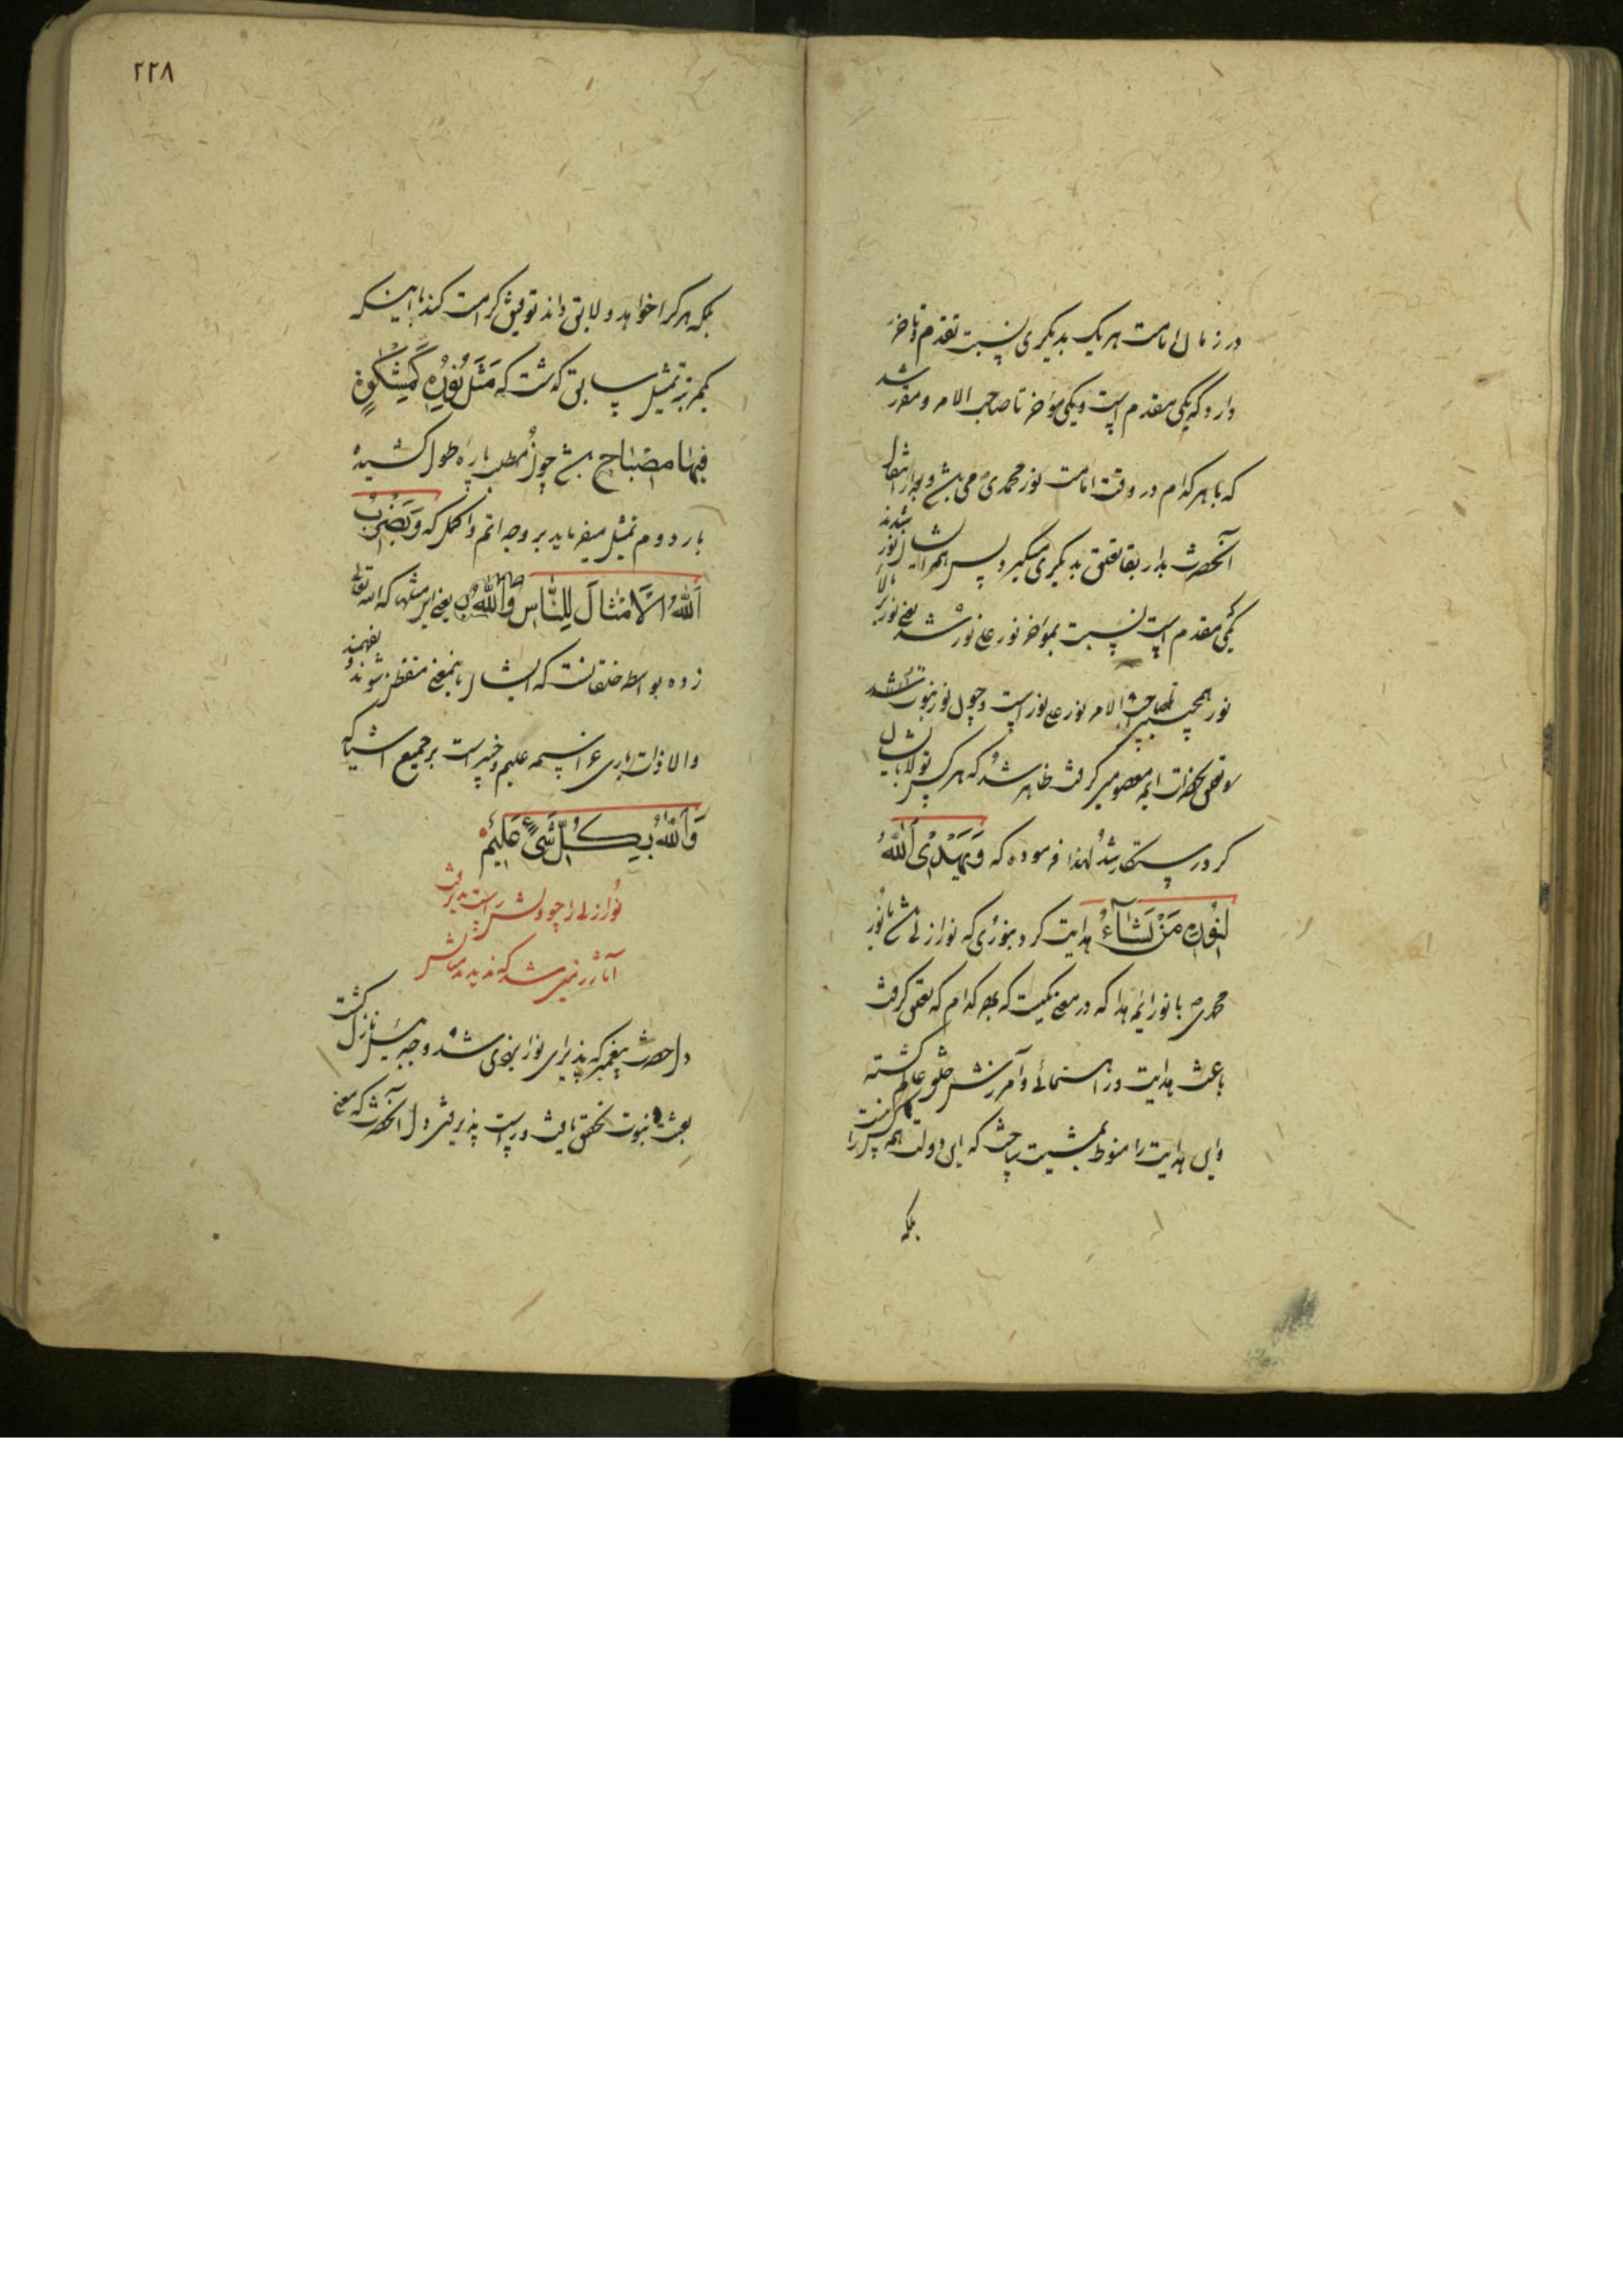 در زمان امامت هر یک بدیگری نسبت تقدم و تاخر
دارد که یکی مقدم است و یکی مؤخر تا صاحب الامر و مقرر شد
که با هر کدام در وقت امامت نور محمدی می باشد و بعد از انتقال
آنحضرت بدار بقا تعلق بدیگری میگیرد پس همه ایشان نور شدند
یکی مقدم است نسبت بمؤخر نور علی نور شد یعنی نور بالای
نور همچنین تا صاحب الامر نور علی نور است و چون نور نبوت
تعلق بحضرات ایمه معصومین گرفت ظاهر شد که هر کس تولا بایشان
کرد رستگار شد لهذا فرموده که وَیَهْدِی اللّٰهُ
لِنُورِهِ مَنْ یَشَآءُ هدایت کرد بنوری که نور ازلی باشد با نور
محمدی ص با نور ایمه هدا که در معنی یکیست که بهر کدام که تعلق گرفت
باعث هدایت و راهنمائی و آفرینش خلق عالم گشته
و این هدایت را منوط بمشیت ساخت که این دولت همه کس را
بلکه
۲۲۸
بلکه هر کرا خواهد و لایق داند توفیق کرامت کند با اینکه
یکمرتبه تمثیل سابق گذشت که مَثَلُ نُورِهِ کَمِشْکٰوةٍ
فِیهَا مِصْبَاحٌ باشد چون مطلب پاره طول کشیده
بار دوم تمثیل میفرماید بر وجه اتم و اکمل که وَیَضْرِبُ
اللّٰهُ الْاَمْثَالَ لِلنَّاسِ وَاللّٰهُ یعنی این مثلها که الله تعالی
زده بواسطه خلقانست که ایشان باینمعنی متفطن شوند و بفهمند
و الا ذات باری عز اسمه علیم و خبیر است بر جمیع اشیا که
وَاللّٰهُ بِکُلِّ شَیْءٍ عَلِیمٌ
نور ازلی را چو دلش راست پذیرفت
دل حضرت پیغمبر که پذیرای نور ایزدی شد و جبرئیل نازل گشت
بعثت نبوت تحقق یافت و راست پذیرفتن دل آنحضرت که معنی